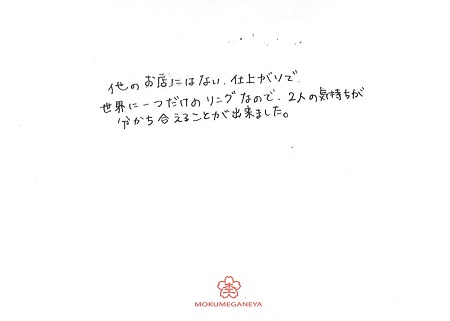 他のお店にはない、仕上がりで、
世界に一つだけのリングなので、2人の気持ちが
分かち合えることが出来ました。
MOKUMEGANEYA